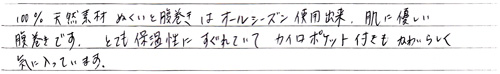 100% 天然素材 ぬくいと腹巻きは オールシーズン 使用出来、肌に優しい
腹巻きです。 とても保湿性に すぐれていて カイロポケット付きも かわいらしく
気に入っています。